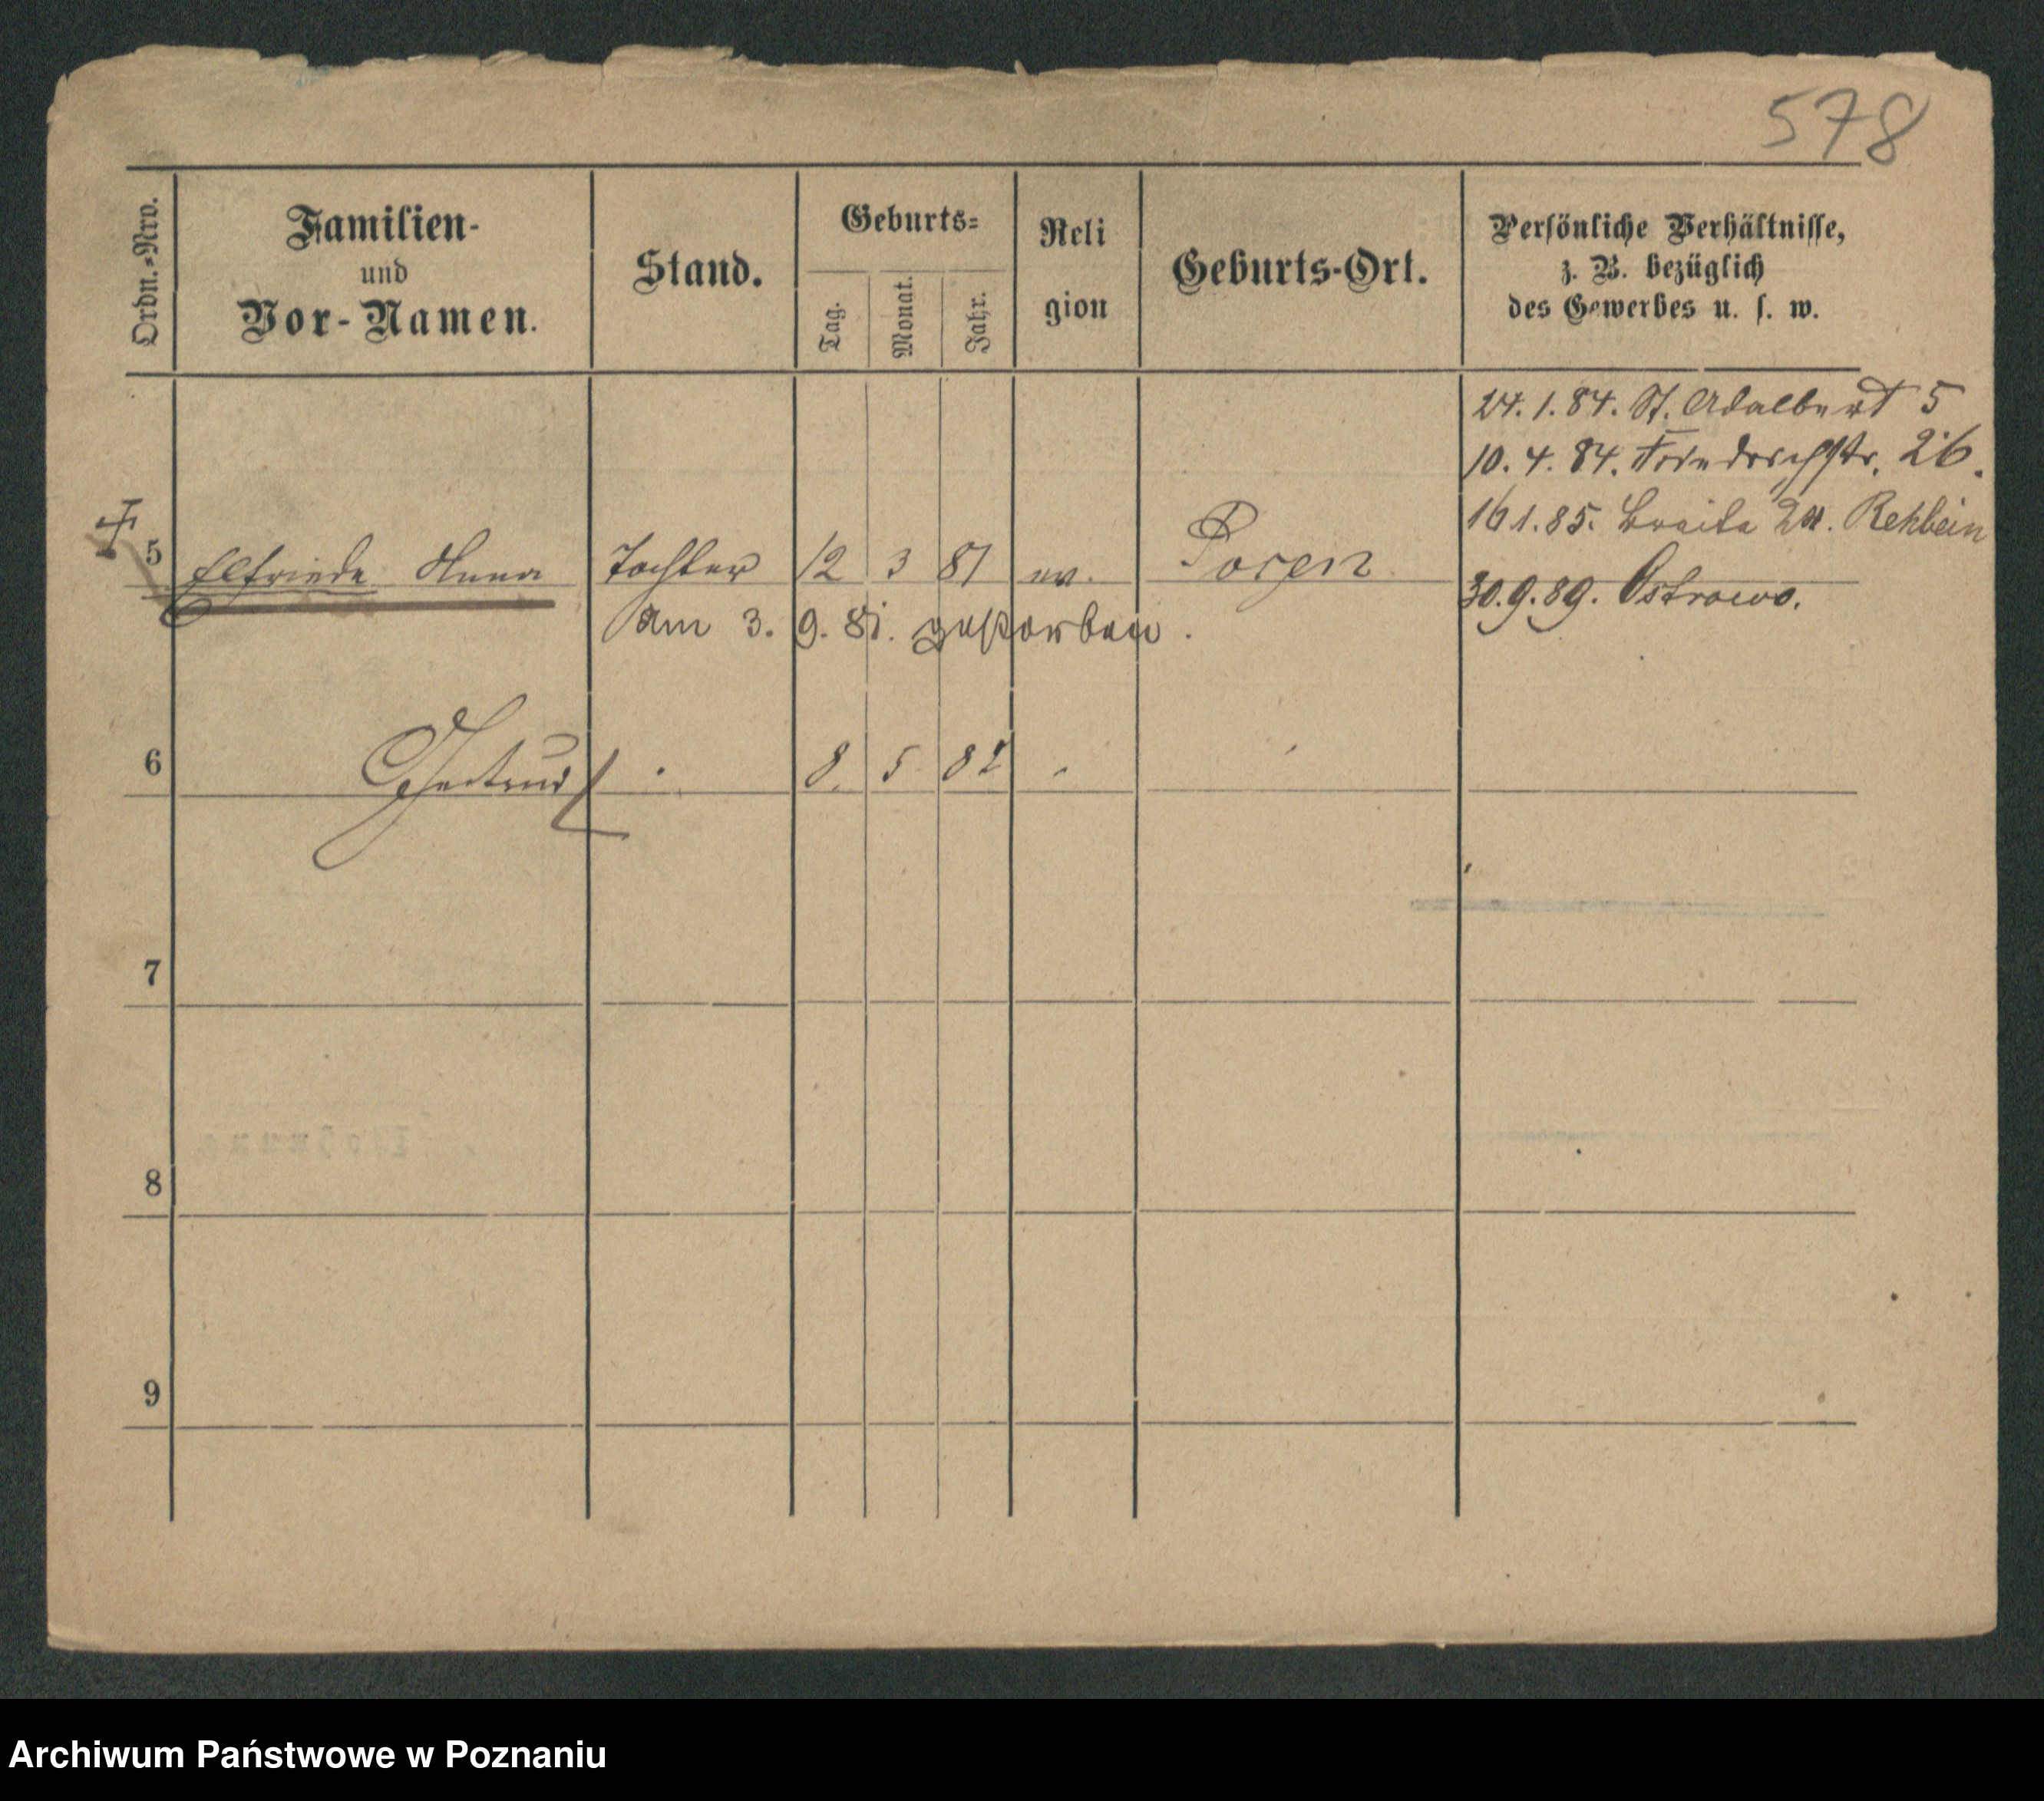 578
Ordn.-Nro.
Familien-
und
Vor-Namen.
Stand.
Geburts-
Tag.
Monat.
Jahr.
Reli
gion
Geburts-Ort.
Persönliche Verhältnisse,
z. B. bezüglich
des Gewerbes u. s. w.
24. 1. 84. St. Adalbert 5
10. 4. 84. Friedrichstr. 26.
16 1. 85. Breite Rehbein
5 Elfriede Anna Tochter 12 3 81 ev. Posen
30. 9. 89. Ostrowo.
Am 3. 9. 81. gestorben.
6 Gertrud 8. 5 82
7
8
9
Archiwum Państwowe w Poznaniu